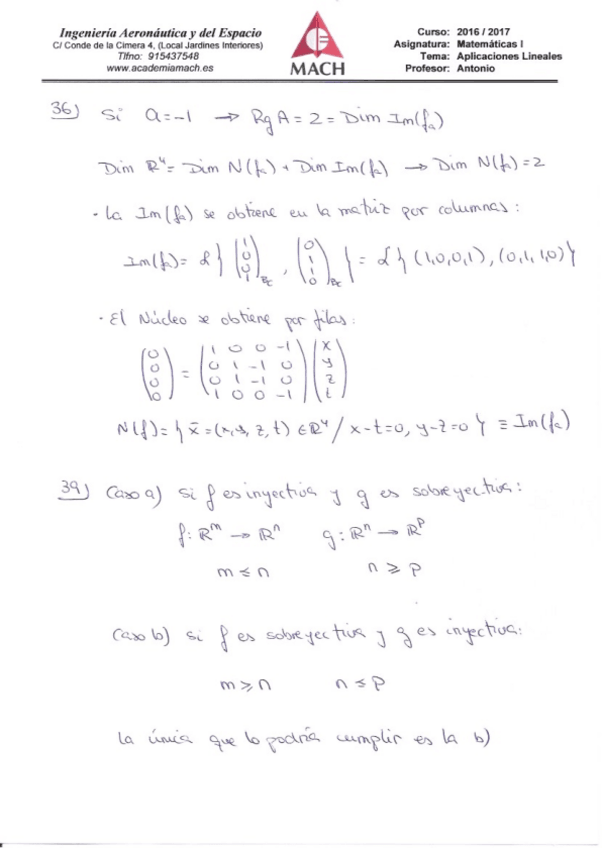 Ingeniería Aeronáutica y del Espacio
C/ Conde de la Cimera 4, (Local Jardines Interiores)
Tlfno: 915437548
www.academiamach.es
MACH
Curso: 2016 / 2017
Asignatura: Matemáticas I
Tema: Aplicaciones Lineales
Profesor: Antonio
36) Si a=-1 → Rg A = 2 = Dim Im(fa)
Dim ℝ⁴ = Dim N(fa) + Dim Im(fa) → Dim N(fa) = 2
· La Im(fa) se obtiene en la matriz por columnas:
Im(fa) = L { (1 0 0 1)Bc , (0 1 1 0)Bc } = L { (1,0,0,1), (0,1,1,0) }
· El Núcleo se obtiene por filas:
(0 0 0 0) = (1 0 0 -1
0 1 -1 0
0 1 -1 0
1 0 0 -1) (x y z t)
N(f) = { x̄ = (x,y,z,t) ∈ ℝ⁴ / x-t=0, y-z=0 } ≡ Im(fa)
39) Caso a) si f es inyectiva y g es sobreyectiva:
f: ℝᵐ → ℝⁿ g: ℝⁿ → ℝᵖ
m ≤ n n ≥ p
Caso b) si f es sobreyectiva y g es inyectiva:
m ≥ n n ≤ p
La única que lo podría cumplir es la b)